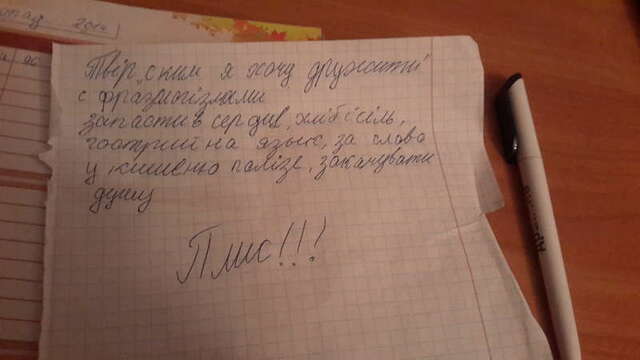 2014
Твір „ с ким я хочу дружити
с фразиологізмами
запасти в сердце, хліб і сіль,
гострий на язык, за слово
у кишеню полізе, закачувати
душу
Плис!!!